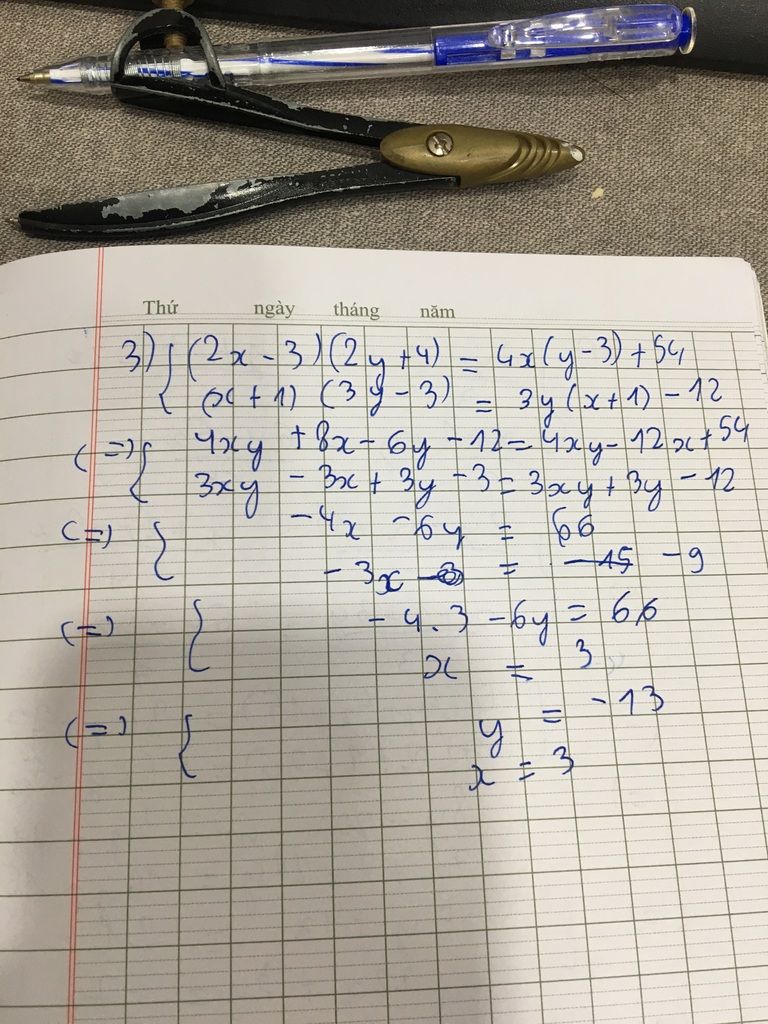 Thứ ngày tháng năm
3) { (2x - 3)(2y + 4) = 4x(y - 3) + 54
(x + 1) (3y - 3) = 3y(x + 1) - 12
(=) { 4xy + 8x - 6y - 12 = 4xy - 12x + 54
3xy - 3x + 3y - 3 = 3xy + 3y - 12
(=) { -4x - 6y = 66
-3x = -15 -9
(=) { -4.3 - 6y = 66
x = 3
(=) { y = -13
x = 3